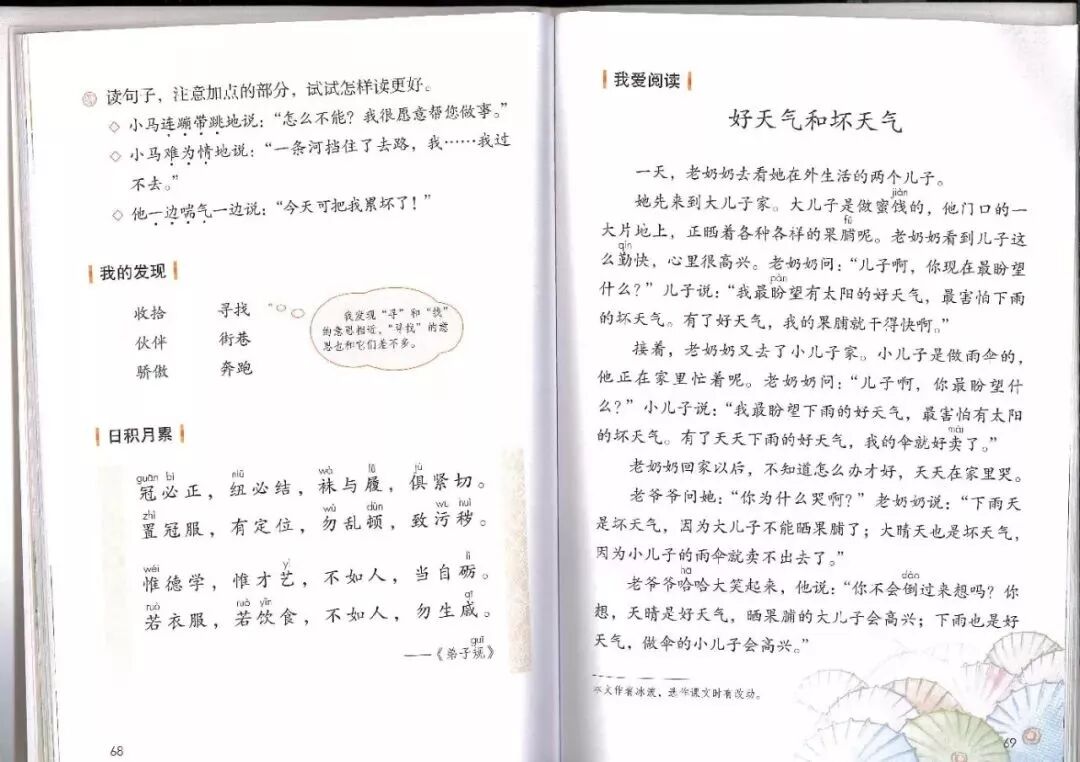 读句子，注意加点的部分，试试怎样读更好。
◇ 小马连蹦带跳地说：“怎么不能？我很愿意帮您做事。”
◇ 小马难为情地说：“一条河挡住了去路，我……我过
不去。”
◇ 他一边喘气一边说：“今天可把我累坏了！”
我的发现
收拾 寻找
伙伴 街巷
骄傲 奔跑
我发现“寻”和“找”
的意思相近，“寻找”的意
思也和它们差不多。
日积月累
guān bì niǔ wà lǚ jù
冠必正，纽必结，袜与履，俱紧切。
zhì wù dùn wū huì
置冠服，有定位，勿乱顿，致污秽。
wéi yì lì
惟德学，惟才艺，不如人，当自砺。
ruò ruò yǐn qī
若衣服，若饮食，不如人，勿生戚。
guī
——《弟子规》
68
我爱阅读
好天气和坏天气
一天，老奶奶去看她在外生活的两个儿子。
jiàn
她先来到大儿子家。大儿子是做蜜饯的，他门口的一
fǔ
大片地上，正晒着各种各样的果脯呢。老奶奶看到儿子这
qín
么勤快，心里很高兴。老奶奶问：“儿子啊，你现在最盼望
pàn
什么？”儿子说：“我最盼望有太阳的好天气，最害怕下雨
的坏天气。有了好天气，我的果脯就干得快啊。”
接着，老奶奶又去了小儿子家。小儿子是做雨伞的，
他正在家里忙着呢。老奶奶问：“儿子啊，你最盼望什
么？”小儿子说：“我最盼望下雨的好天气，最害怕有太阳
mài
的坏天气。有了天天下雨的好天气，我的伞就好卖了。”
老奶奶回家以后，不知道怎么办才好，天天在家里哭。
老爷爷问她：“你为什么哭啊？”老奶奶说：“下雨天
是坏天气，因为大儿子不能晒果脯了；大晴天也是坏天气，
因为小儿子的雨伞就卖不出去了。”
hā dào
老爷爷哈哈大笑起来，他说：“你不会倒过来想吗？你
想，天晴是好天气，晒果脯的大儿子会高兴；下雨也是好
天气，做伞的小儿子会高兴。”
本文作者冰波，选作课文时有改动。
69